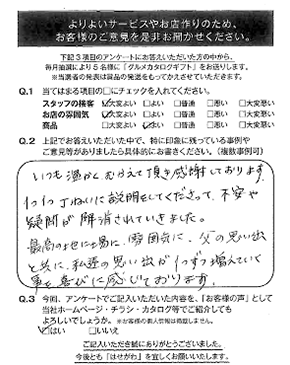 よりよいサービスやお店作りのため、
お客様のご意見を是非お聞かせください。
下記3項目のアンケートにお答えいただいた方の中から、
毎月抽選により5名様に「グルメカタログギフト」をお送りします。
※当選者の発表は賞品の発送をもってかえさせていただきます。
Q.1 当てはまる項目の□にチェックを入れてください。
スタッフの接客 ☑大変よい □よい □普通 □悪い □大変悪い
お店の雰囲気 ☑大変よい □よい □普通 □悪い □大変悪い
商品 □大変よい ☑よい □普通 □悪い □大変悪い
Q.2 上記でお答えいただいた中で、特に印象に残っている事例や
ご意見等がありましたら具体的にお書きください。(複数事例可)
いつも温かくむかえて頂き感謝しております
1つ1つていねいに説明をしてくださって、不安や
疑問が解消されていきました。
最高のお仏壇に、雰囲気に、父の思い出
と共に、私達の思い出が1つずつ増えていく
事を喜びに感じております。
Q.3 今回、アンケートでご記入いただいた内容を、「お客様の声」として
当社ホームページ・チラシ・カタログ等でご紹介しても
よろしいでしょうか。※お客様の個人情報は掲載しません。
☑はい □いいえ
ご記入いただき誠にありがとうございました。
今後とも「はせがわ」を宜しくお願いいたします。